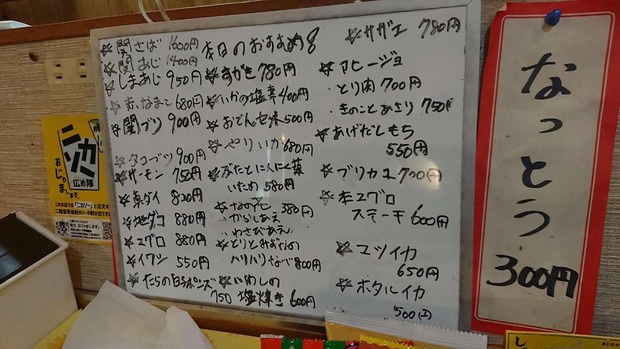 本日のおすすめ
☆関さば 1600円
☆関あじ 1400円
☆しまあじ 950円
☆赤なまこ 680円
☆関ブリ 900円
☆タコブツ 900円
☆サーモン 750円
☆真ダイ 820円
☆地ダコ 880円
☆マグロ 880円
☆イワシ 550円
☆たらの白子ポンズ
750
☆生がき 780円
☆いかの塩辛 400円
☆おでんセット 500円
☆やりいか 680円
☆ぶたとにんにく葉
いため 580円
380円
からしあえ
わさびあえ
☆とりとみずなの
ハリハリなべ 800円
☆いわしの
塩焼き 600円
☆サザエ 780円
☆アヒージョ
・とり肉 700円
・きのことあさり 750円
☆あげだしもち
550円
☆ブリカマ 700円
☆本マグロ
ステーキ 600円
☆ユツイカ
650円
☆ホタルイカ
500
なっとう
300円
ニカソー
広め隊
おじゃまします。